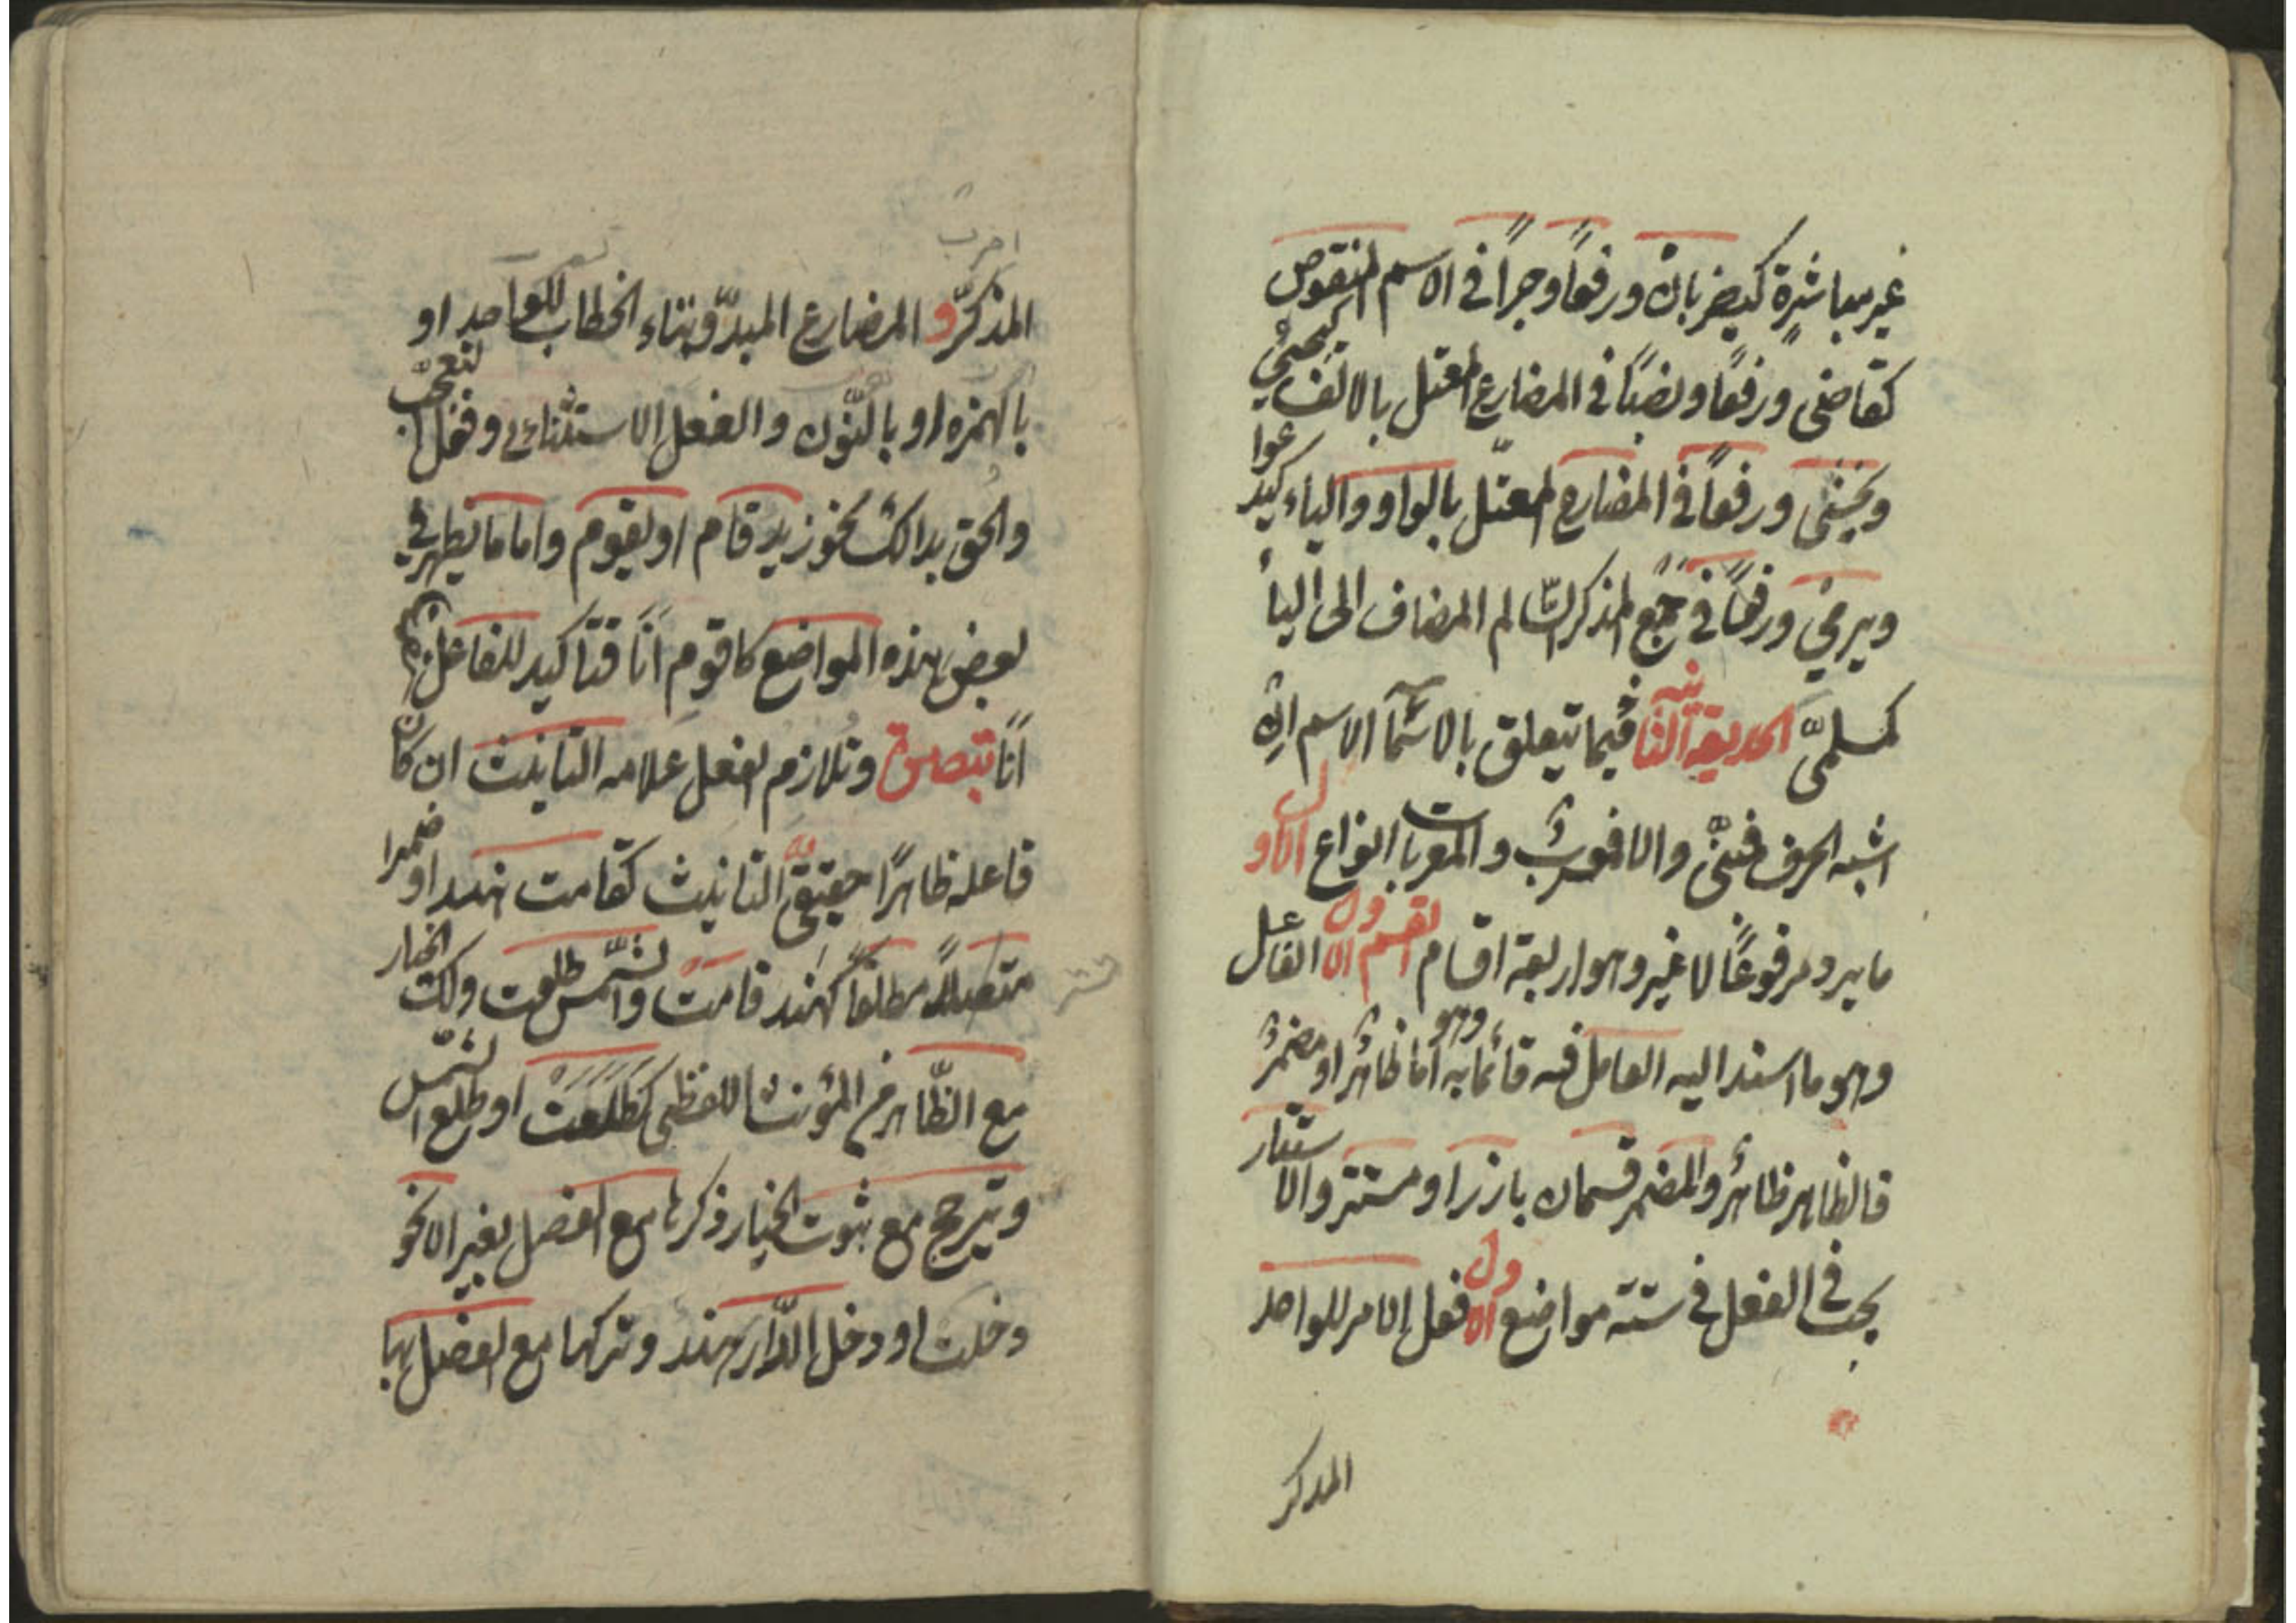 غير مباشرة كيضربانّ ورفعًا وجرًا في الاسم المنقوص
كقاضي ورفعًا ونصبًا في المضارع المعتل بالالف كيحيى
ويخشى ورفعًا في المضارع المعتل بالواو والياء كيدعوا
ويرمي ورفعًا في جمع المذكر السّالم المضاف الى اليأ
كمسلميَّ الحديقة الثانية فيما يتعلق بالاسمآ الاسم ان
اشبه الحرف فمبنيٌّ والا فمعربٌ والمعربات انواع الاول
ما يرد مرفوعًا لا غير وهو اربعة اقسام القسم الاول الفاعل
وهو ما اسند اليه العامل فيه قائما به وهو اما ظاهرٌ او مضمرٌ
فالظاهر ظاهرٌ والمضمر قسمان بارز او مستتر والاستتار
يجب في الفعل في ستة مواضع الاول فعل الامر للواحد
المذكر
المذكّر و المضارع المبدّو بتاء الخطاب للواحد او
بالهمزه او بالنّون والفعل الاستثنائي وفعل التعجّب
والحق بذالك نحو زيد قام او يقوم واما ما يظهر في
بعض هذه المواضع كاقوم انَا فتأكيد للفاعل كقم
انَا تبصرة وتلازم الفعل علامه التانيث ان كان
فاعله ظاهرًا حقيقيّ التانيث كقامت هند او ضميرا
متصلًا مطلقًا كهند قامت والشّمس طلعت ولك الخيار
مع الظّاهر في المؤنث اللفظي كطَلَعَت او طلع الشّمس
ويترجح مع ثبوت الخيار ذكرها مع الفصل بغير الا نحو
دخلت او دخل الدّار هند وتركها مع الفصل بها